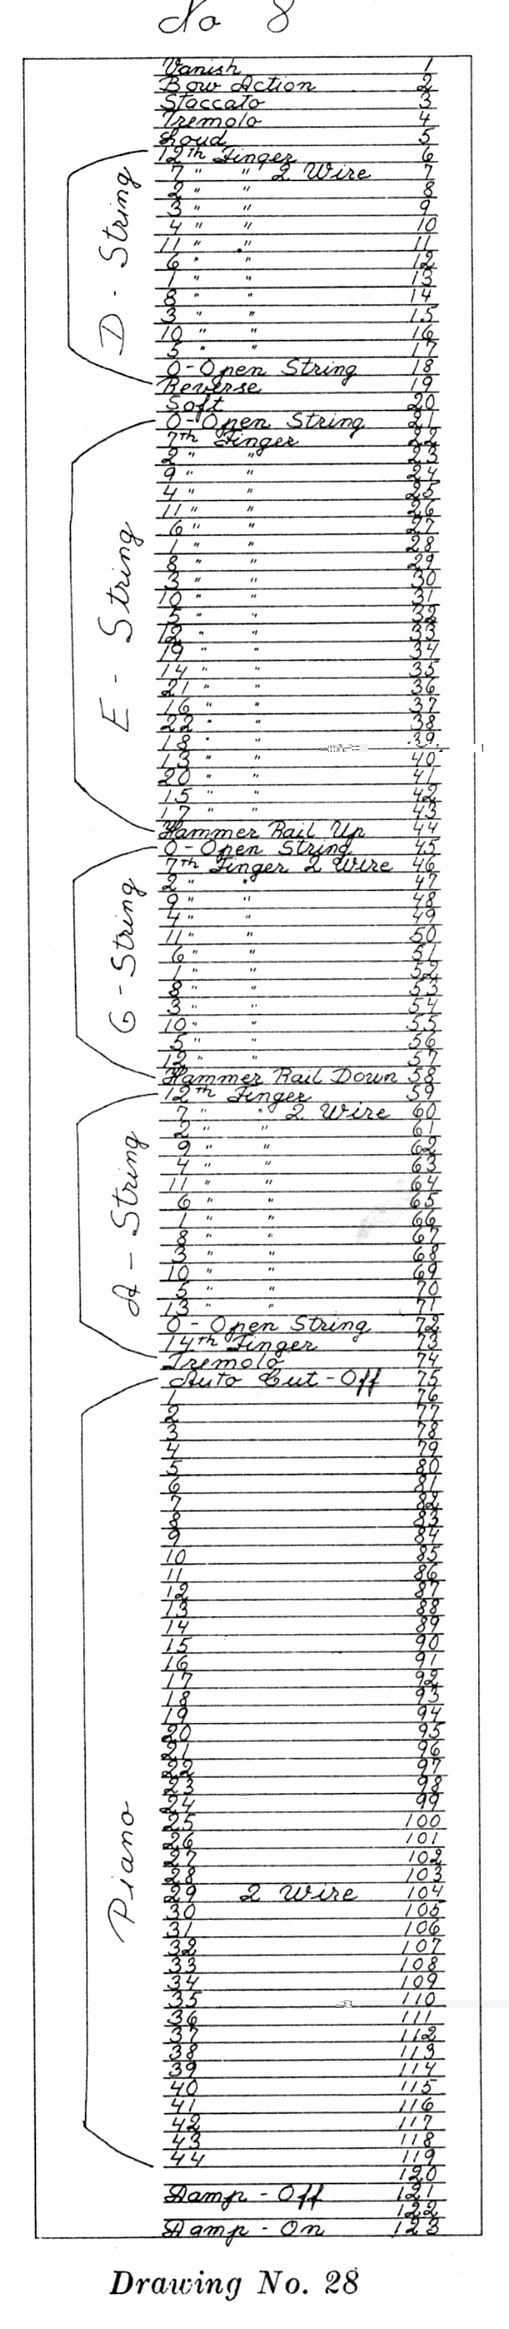 No 8
Vanish 1
Bow Action 2
Staccato 3
Tremolo 4
Loud 5
D - String
12th Finger 6
7 " " 2 Wire 7
2 " " 8
3 " " 9
4 " " 10
11 " " 11
6 " " 12
1 " " 13
8 " " 14
3 " " 15
10 " " 16
5 " " 17
0 - Open String 18
Reverse 19
Soft 20
E - String
0 - Open String 21
7th Finger 22
2 " " 23
9 " " 24
4 " " 25
11 " " 26
6 " " 27
1 " " 28
8 " " 29
3 " " 30
10 " " 31
5 " " 32
12 " " 33
19 " " 34
14 " " 35
21 " " 36
16 " " 37
22 " " 38
18 " " 39
13 " " 40
20 " " 41
15 " " 42
17 " " 43
Hammer Rail Up 44
G - String
0 - Open String 45
7th Finger 2 Wire 46
2 " " 47
9 " " 48
4 " " 49
11 " " 50
6 " " 51
1 " " 52
8 " " 53
3 " " 54
10 " " 55
5 " " 56
12 " " 57
Hammer Rail Down 58
A - String
12th Finger 59
7 " " 2 Wire 60
2 " " 61
9 " " 62
4 " " 63
11 " " 64
6 " " 65
1 " " 66
8 " " 67
3 " " 68
10 " " 69
5 " " 70
13 " " 71
0 - Open String 72
14th Finger 73
Tremolo 74
Piano
Auto Cut - Off 75
1 76
2 77
3 78
4 79
5 80
6 81
7 82
8 83
9 84
10 85
11 86
12 87
13 88
14 89
15 90
16 91
17 92
18 93
19 94
20 95
21 96
22 97
23 98
24 99
25 100
26 101
27 102
28 103
29 2 Wire 104
30 105
31 106
32 107
33 108
34 109
35 110
36 111
37 112
38 113
39 114
40 115
41 116
42 117
43 118
44 119
120
Damp - Off 121
122
Damp - On 123
Drawing No. 28